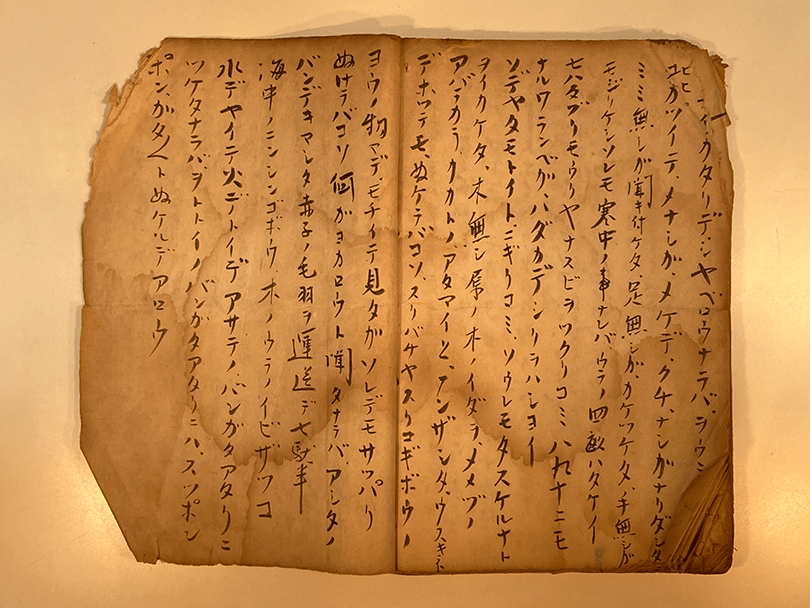 クタリデ、シヤベロウナラバ、ラウニ
ガツイテ、メナシガ、メケデ、クチ、ナシガナリダシタ
ミミ無シガ聞キ付ケタ、足無シガ、カケツケタ、手無シガ
モジリケシソレモ寒中ノ事ナレバ、ウラノ四畝ハタケイ
七八ダブリモウリヤナスビヲツクリコミ八九十ニモ
ナルワランベガ、ハダカデシリラハシヨイ
ソデヤタモトイトニギリコミ、ソウレモタスケルナト
ヲイカケタ、木無シ原ノ木ノイダラ、メメヅノ
アバラカラ、クカトノ、アタマイと、アンザンタ、ウスキネ
デホツテモ、ぬケラバコソ、スリバチヤスリコギボウノ
ヨウノ物マデ、モチイテ見タガソレデモサツパリ
ぬけラバコソ何ガヨカロウト聞タナラバ、アシタノ
バンデキマシタ赤子ノ毛羽ヲ運送デ七駄半
海中ノニンシンゴボウ、木ノウラノイビザツコ
水デヤイテ火デトイデアサテノ、バンガタアタリニ
ツケタナラバヲトトイノバンガタアタリニハ、スツポン
ポン、ガタヘトぬケルデアロウ